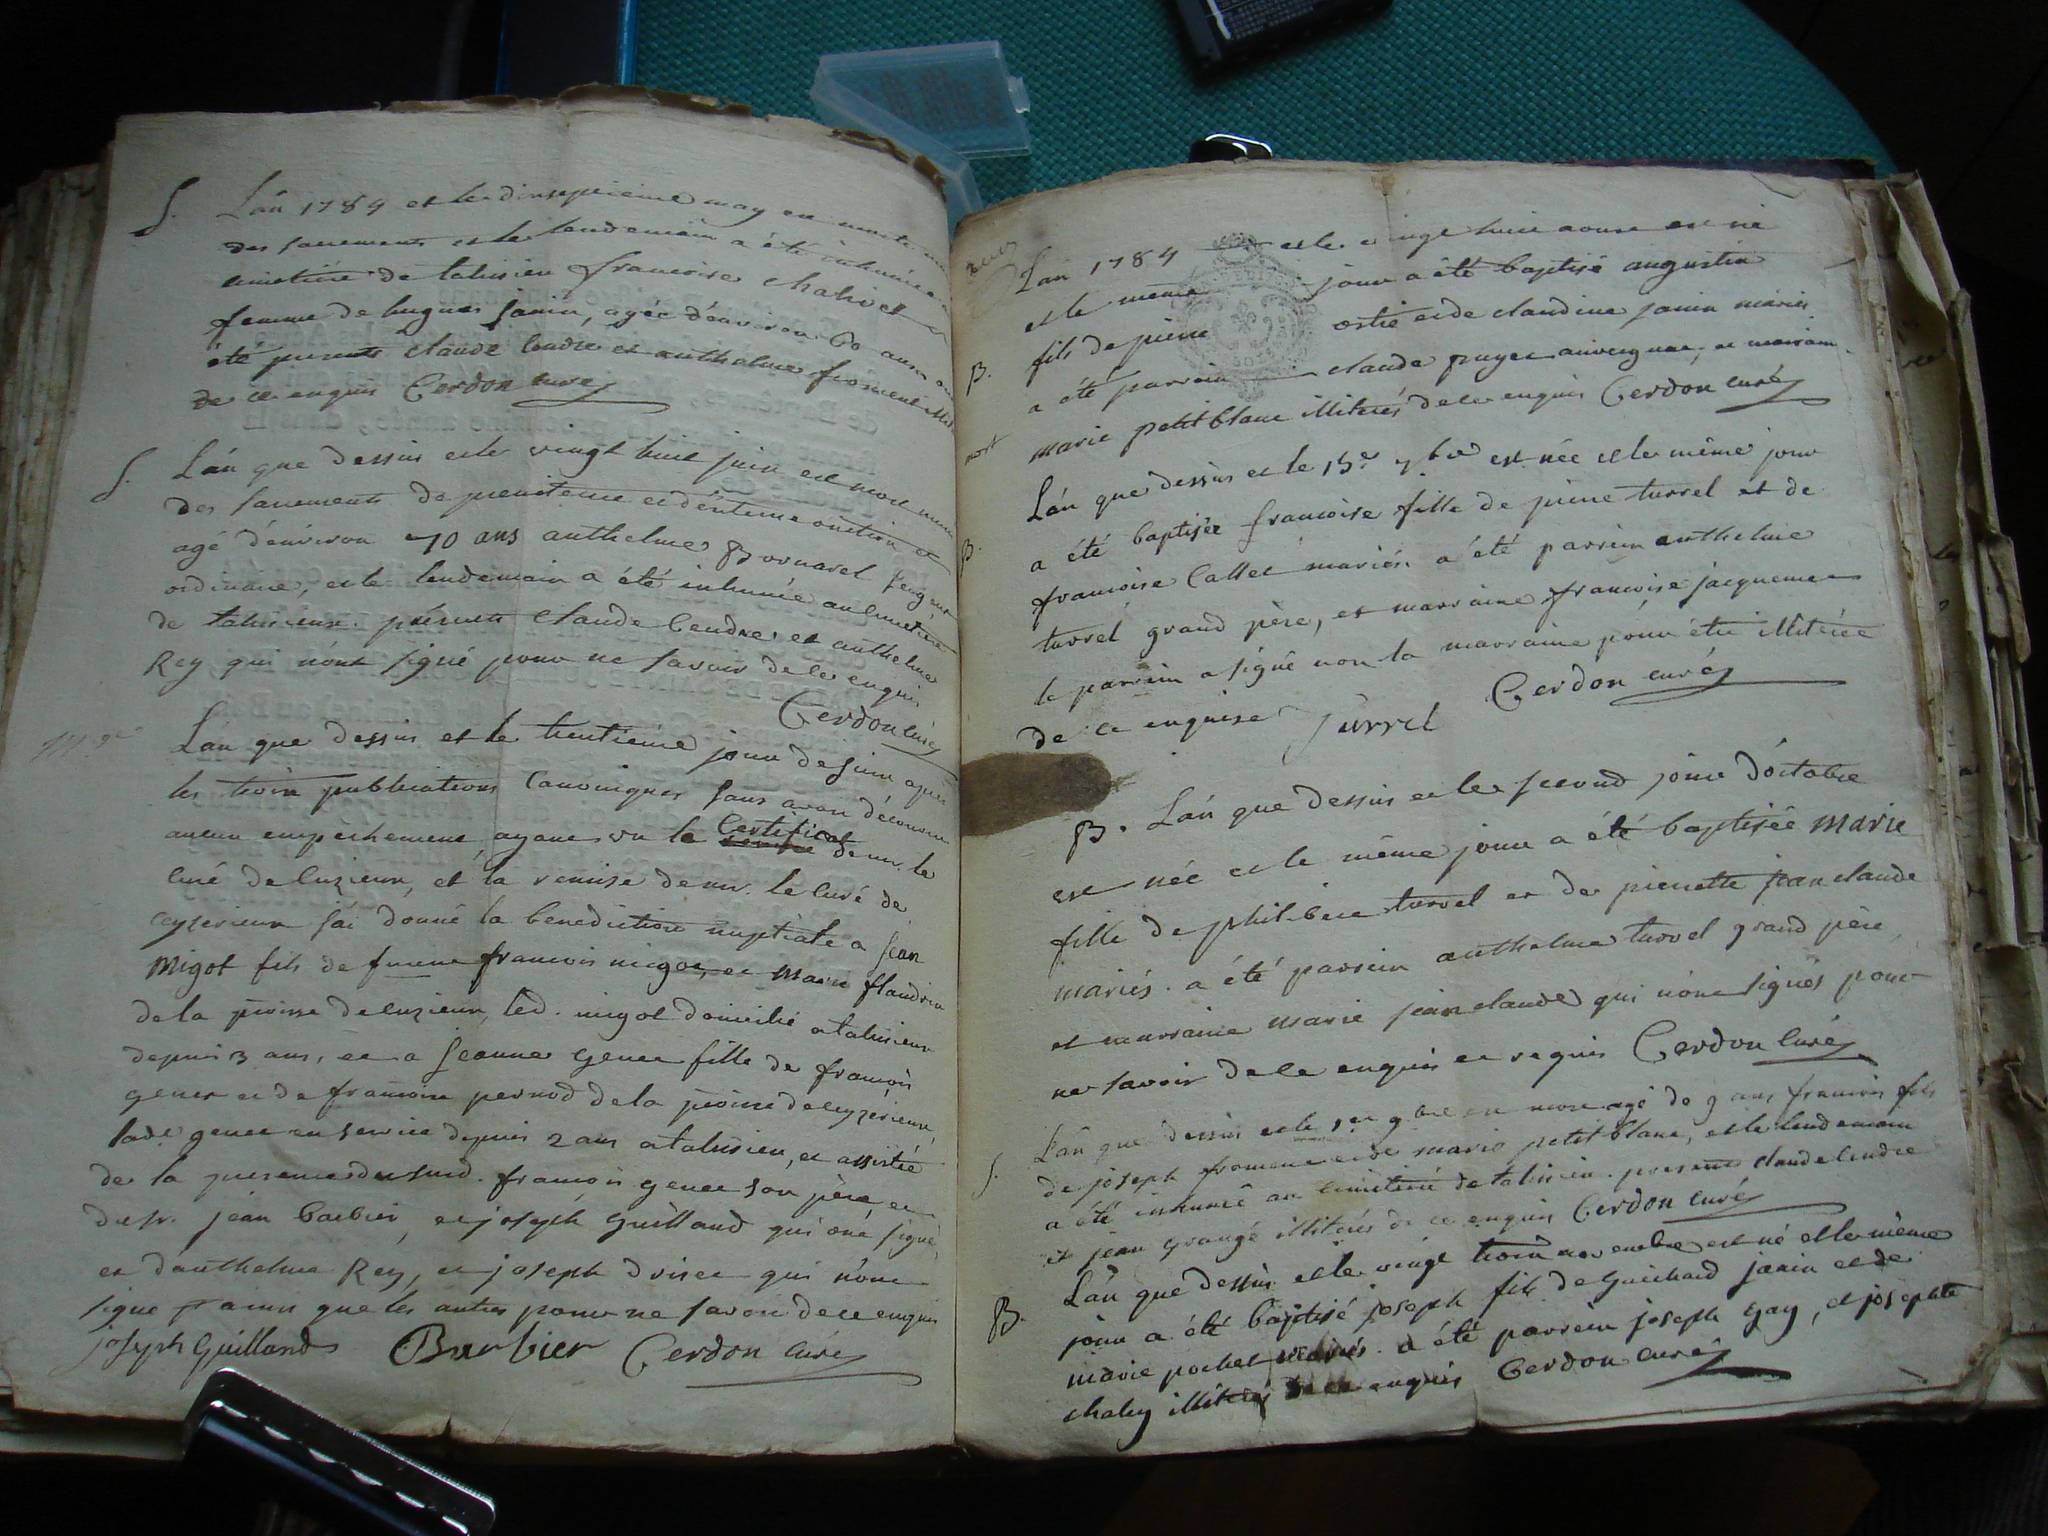 S. L'án 1784 et le dixseptieme may est morte
des sacrements et le lendemain a été inhumée
cimetière de talissieu francoise chalvet
femme de hugues janin, agée d'environ 60 ans
été présents claude cendre et anthelme froment
de ce enquis Cerdon curé
S. L'án que dessus et le vingt huit juin est mort muni
des sacrements de penitence et d'éxtreme onction et
agé d'environ 70 ans anthelme Bornarel
ordinaire, et le lendemain a été inhumée au cimetiere
de talissieux. présents claude Cendre et anthelme
Rey qui n'ont signé pour ne savoir de ce enquis
Cerdon curé
M.ge L'án que dessus et le trentième jour de juin après
les trois publications Canoniques sans avoir découvert
aucun empechement, ayant vu le Certificat de mr. le
curé de luzieux, et la remise de mr. le curé de
ceyzerieux j'ai donné la benediction nuptiale a jean
Migot fils de francois migot, et Marie flandrin
de la poisse de luzieux, led. migot domicilié a talissieux
depuis 3 ans, et a jeanne genet fille de francois
genet et de francoise pernod de la poisse de ceyzerieux,
lade genet en service depuis 2 ans a talissieu, et assistée
de la presence du susd. francois genet son père, et
du sr. jean barbier, et joseph Guilland qui ont signé,
et d'anthelme Rey, et joseph qui n'ont
signé ainsi que les autres pour ne savoir de ce enquis
joseph Guilland Barbier Cerdon curé
L'án 1784 et le vingt huit aoust est né
et le même jour a été baptisé augustin
B. fils de pierre ostié et de claudine janin mariés
a été parrain claude auvergne, et marraine
marie petit blanc illiterés de ce enquis Cerdon curé
mort
L'án que dessus et le 15e 7bre est née et le même jour
B. a été baptisée francoise fille de pierre turrel et de
francoise Callet mariés. a été parrein anthelme
turrel grand père, et marraine francoise jacquemet
le parrein a signé non la marraine pour étre illiterée
de ce enquise Turrel Cerdon curé
B. L'án que dessus et le second jour d'octobre
est née et le même jour a été baptisée Marie
fille de philibert turrel et de pierrette jean claude
mariés. a été parrein anthelme turrel grand père,
et marraine Marie jean claude qui n'ont signés pour
ne savoir de ce enquis et requis Cerdon Curé
L'án que dessus et le 1er 9bre est mort agé de 9 ans francois fils
S. de joseph froment et de marie petit blanc, et le lendemain
a été inhumé au cimetière de talissieu. presents claude Cendre
et jean grangé illiterés de ce enquis Cerdon curé
L'án que dessus et le vingt trois novembre est né et le même
B. jour a été baptisé joseph fils de Guichard janin et de
marie pochet mariés. a été parrein joseph Gay, et josephte
chaley illiterés de ce enquis Cerdon curé